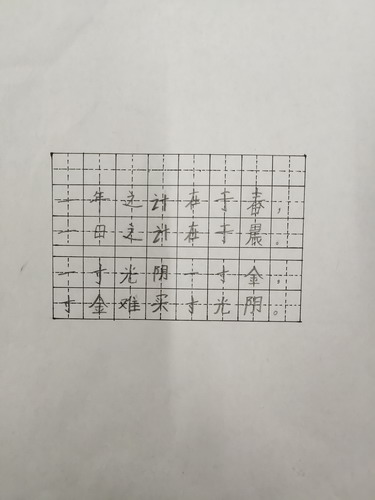 一年之计在于春，
一日之计在于晨。
一寸光阴一寸金，
寸金难买寸光阴。